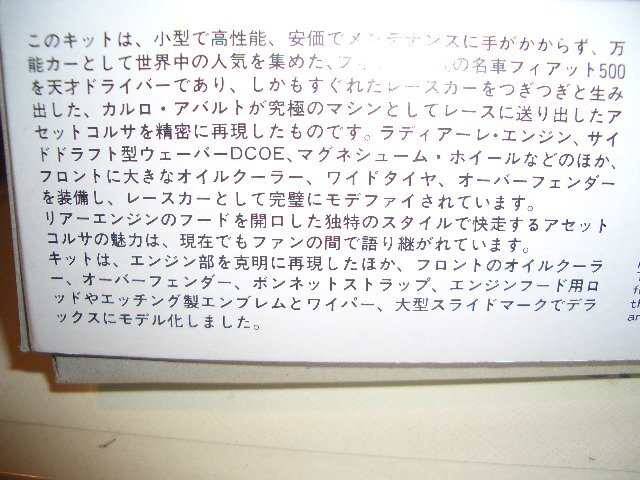 このキットは、小型で高性能、安価でメンテナンスに手がかからず、万
能カーとして世界中の人気を集めた、フィ の名車フィアット500
を天才ドライバーであり、しかもすぐれたレースカーをつぎつぎと生み
出した、カルロ・アバルトが究極のマシンとしてレースに送り出したア
セットコルサを精密に再現したものです。ラディアーレ・エンジン、サイ
ドドラフト型ウェーバーDCOE、マグネシューム・ホイールなどのほか、
フロントに大きなオイルクーラー、ワイドタイヤ、オーバーフェンダー
を装備し、レースカーとして完璧にモデファイされています。
リアーエンジンのフードを開口した独特のスタイルで快走するアセット
コルサの魅力は、現在でもファンの間で語り継がれています。
キットは、エンジン部を克明に再現したほか、フロントのオイルクーラ
ー、オーバーフェンダー、ボンネットストラップ、エンジンフード用ロ
ッドやエッチング製エンブレムとワイパー、大型スライドマークでデラ
ックスにモデル化しました。